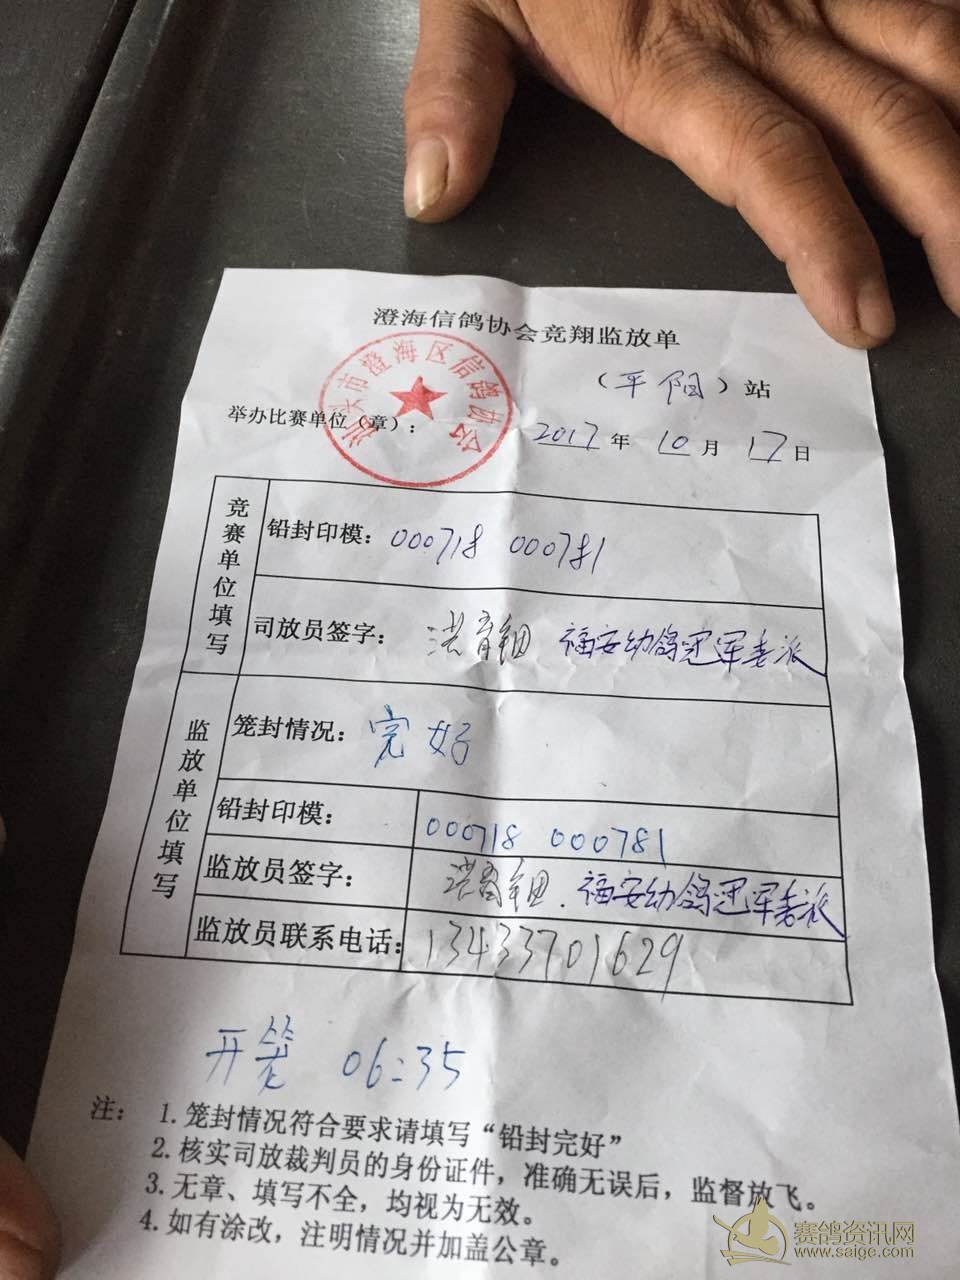 澄海信鸽协会竞翔监放单
（平阳）站
汕头市澄海区信鸽协会
举办比赛单位（章）：
2017年10月17日
竞赛单位填写
铅封印模：000718 000781
司放员签字：洪育钿 福安幼鸽冠军委派
监放单位填写
笼封情况：完好
铅封印模：000718 000781
监放员签字：洪育钿．福安幼鸽冠军委派
监放员联系电话：13433701629
开笼 06:35
注：1.笼封情况符合要求请填写“铅封完好”
2.核实司放裁判员的身份证件，准确无误后，监督放飞。
3.无章、填写不全，均视为无效。
4.如有涂改，注明情况并加盖公章。
赛鸽资讯网
www.saige.com